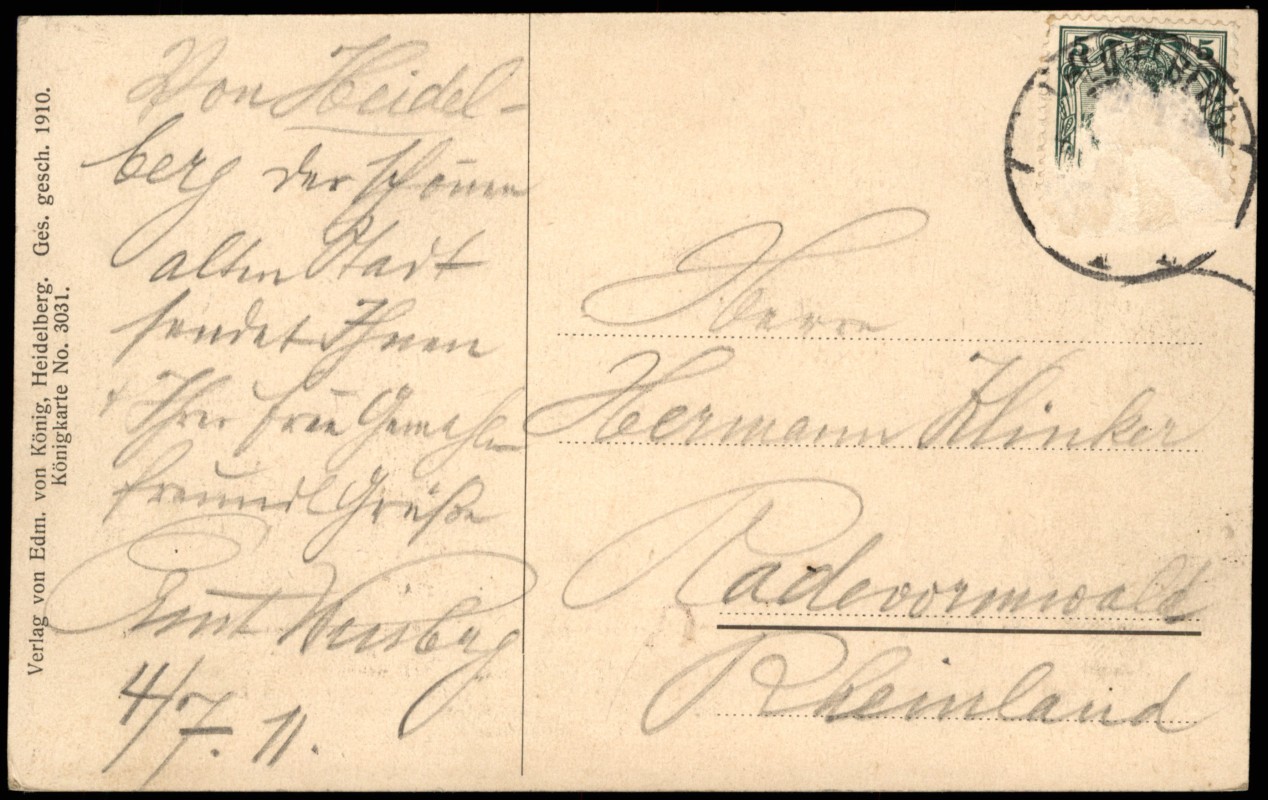 Von Heidel-
berg der schönen
alten Stadt
sendet Ihnen
+ Ihrer Frau Gemahlin
freundl Grüße
4/7. 11.
Verlag von Edm. von König, Heidelberg. Ges. gesch. 1910.
Königkarte No. 3031.
5 5
Herrn
Hermann Klinker
Radevormwald
Rheinland